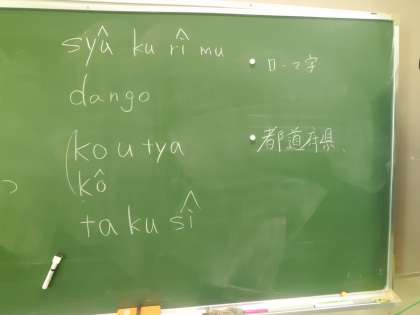 syûkurîmu
dango
koutya
kô
takusî
・ローマ字
・都道府県